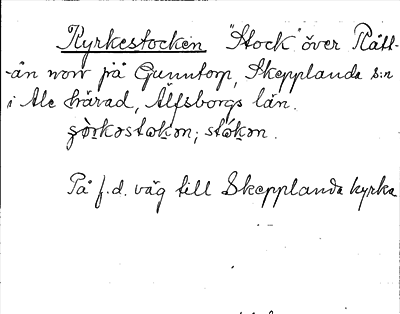 Kyrkestocken "Stock" över Rått-
-ån norr på Gunntorp, Skepplanda s:n
i Ale härad, Älfsborgs län.
På f.d. väg till Skepplanda kyrka